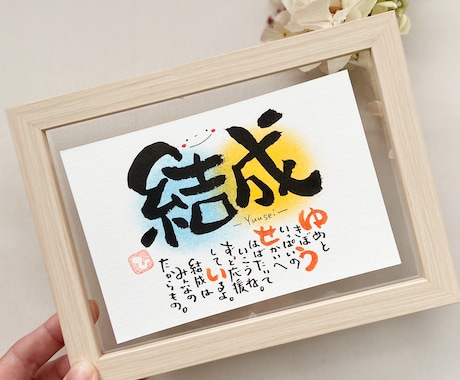 結成
— Yuusei —
ゆめと
きぼう
いっぱいの
せかいへ
はばたいて
いこうね。
ずっと応援
しているよ
結成は
みんなの
たからもの。